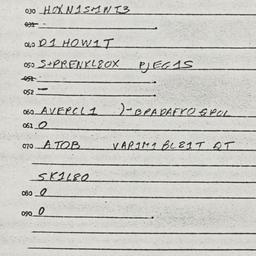 030 HOXN1S1NTS
031 .
040 D1 HOW1T
050 S+PRENKL8OX PJEG1S
051 .
052 -
060 AVEPCL1 )-BPADAFKO&POL
061 O
070 ATOB VAP1M1 BL81T QT
SK1L8O
080 O
090 O .